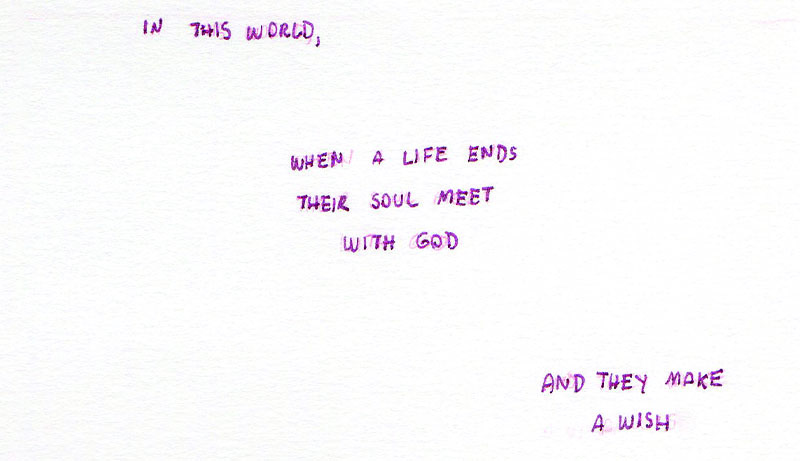 IN THIS WORLD,
WHEN A LIFE ENDS
THEIR SOUL MEET
WITH GOD
AND THEY MAKE
A WISH